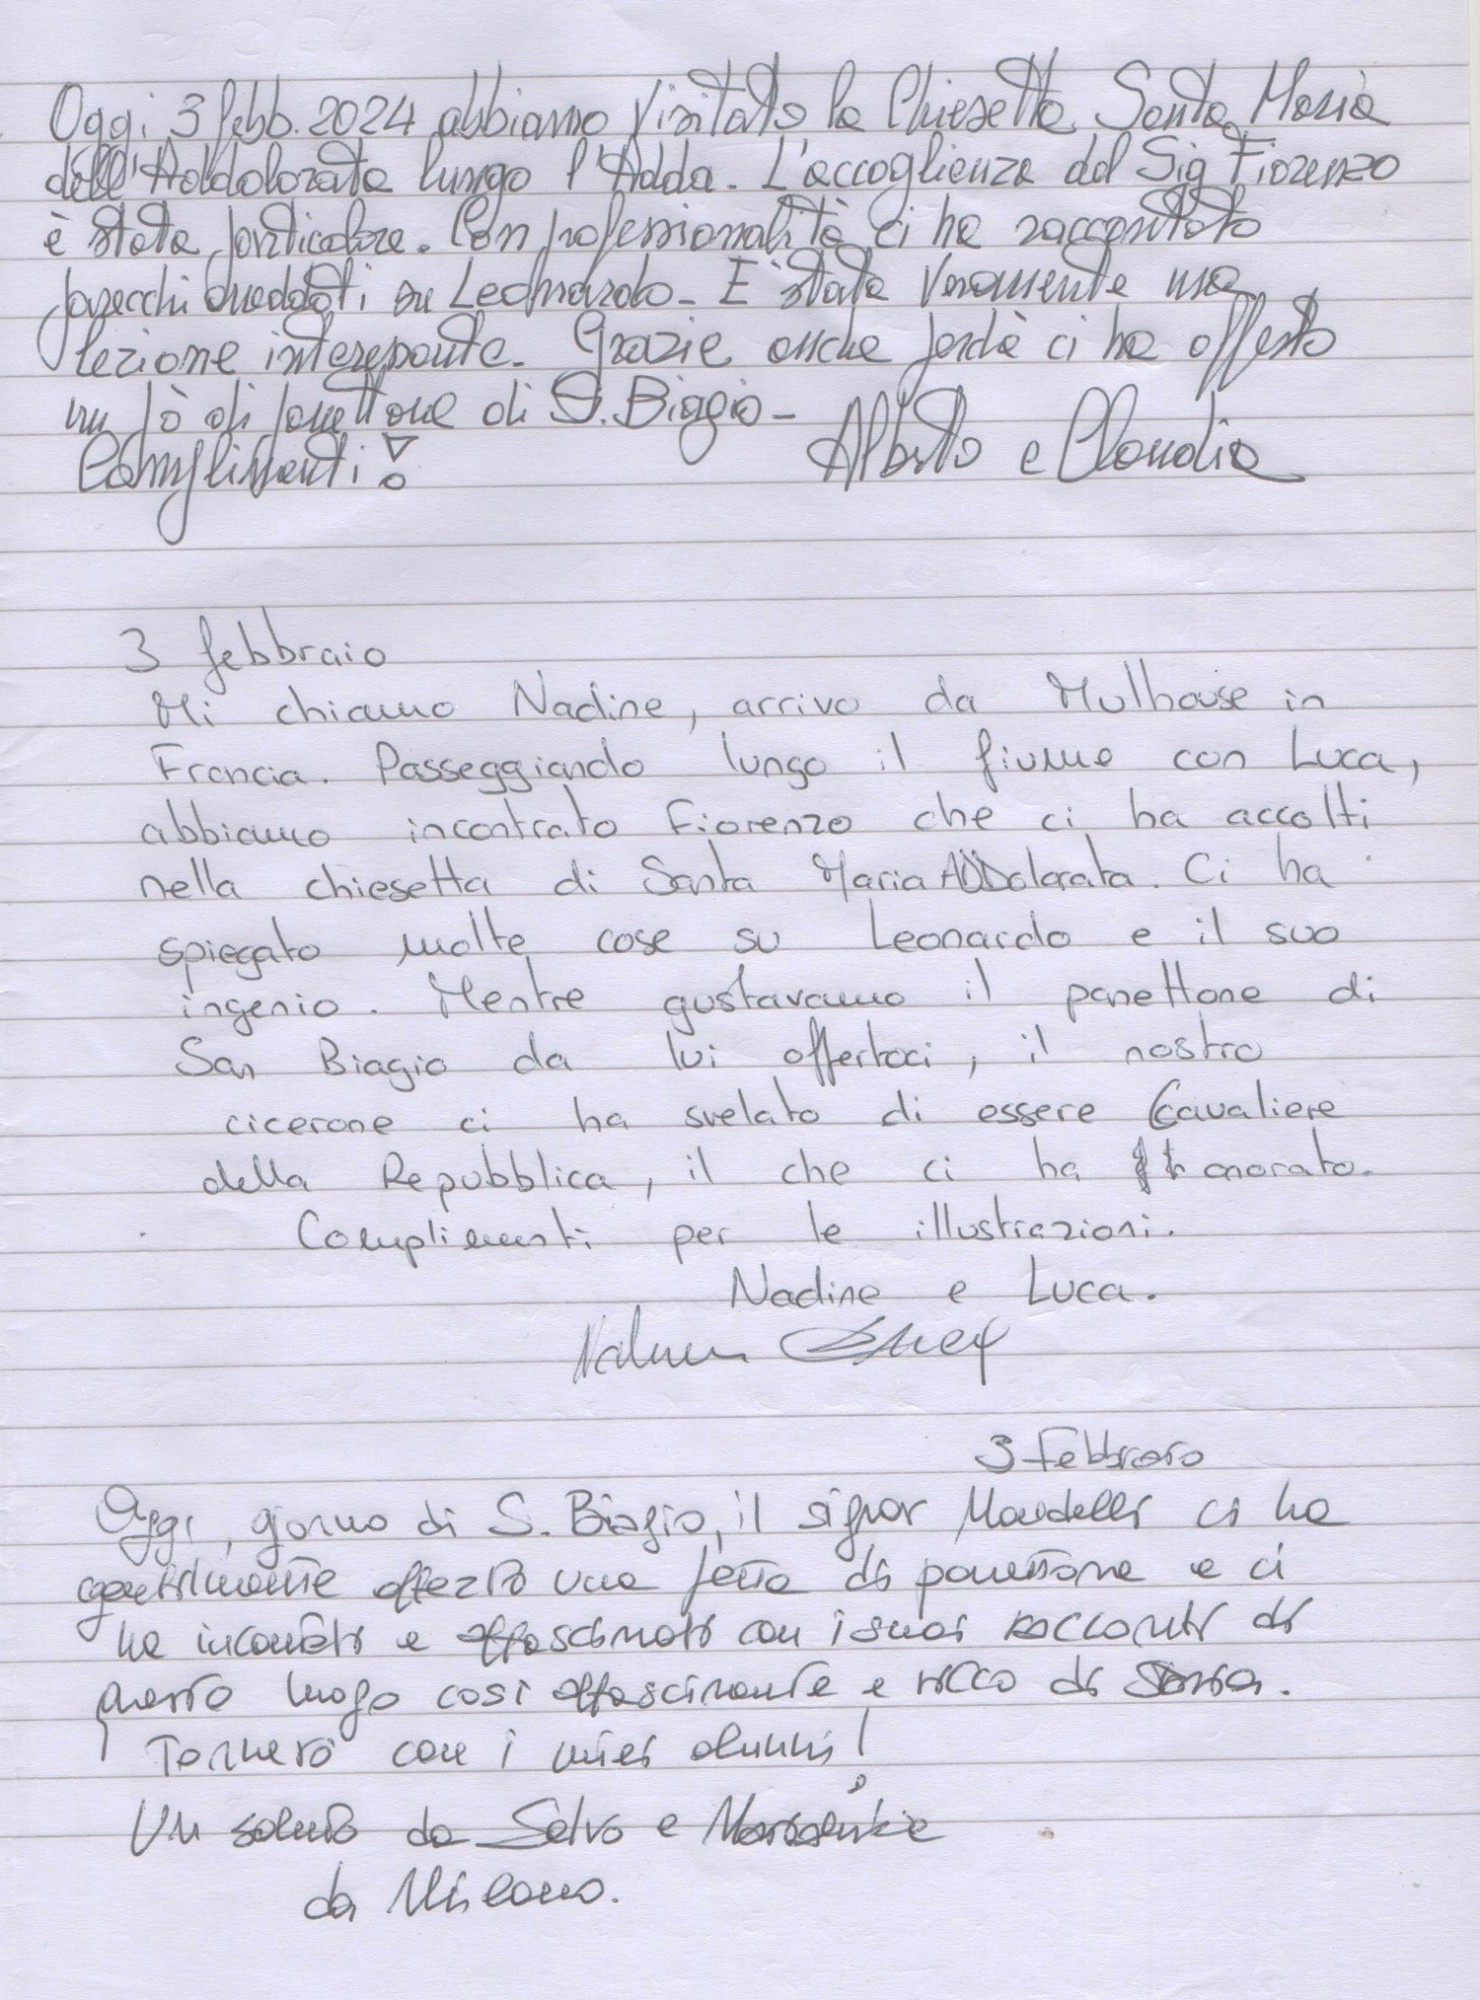 Oggi 3 febb. 2024 abbiamo visitato la Chiesetta Santa Maria
dell'Addolorata lungo l'Adda. L'accoglienza del Sig Fiorenzo
è stata particolare. Con professionalità ci ha raccontato
parecchi aneddoti su Leonardo - E' stata veramente una
lezione interessante. Grazie anche perchè ci ha offerto
un pò di panettone di S. Biagio -
Complimenti! Alberto e Claudia
3 febbraio
Mi chiamo Nadine, arrivo da Mulhouse in
Francia. Passeggiando lungo il fiume con Luca,
abbiamo incontrato Fiorenzo che ci ha accolti
nella chiesetta di Santa Maria ADDolorata. Ci ha
spiegato molte cose su Leonardo e il suo
ingenio. Mentre gustavamo il panettone di
San Biagio da lui offertoci, il nostro
cicerone ci ha svelato di essere Cavaliere
della Repubblica, il che ci ha onorato.
Complimenti per le illustrazioni.
Nadine e Luca.
3 Febbraio
Oggi, giorno di S. Biagio, il signor Mandelli ci ha
gentilmente offerto una fetta di panettone e ci
ha incantati e affascinati con i suoi racconti di
questo luogo così affascinante e ricco di storia.
Tornerò con i miei alunni!
Un saluto da Salvo e
da Milano.